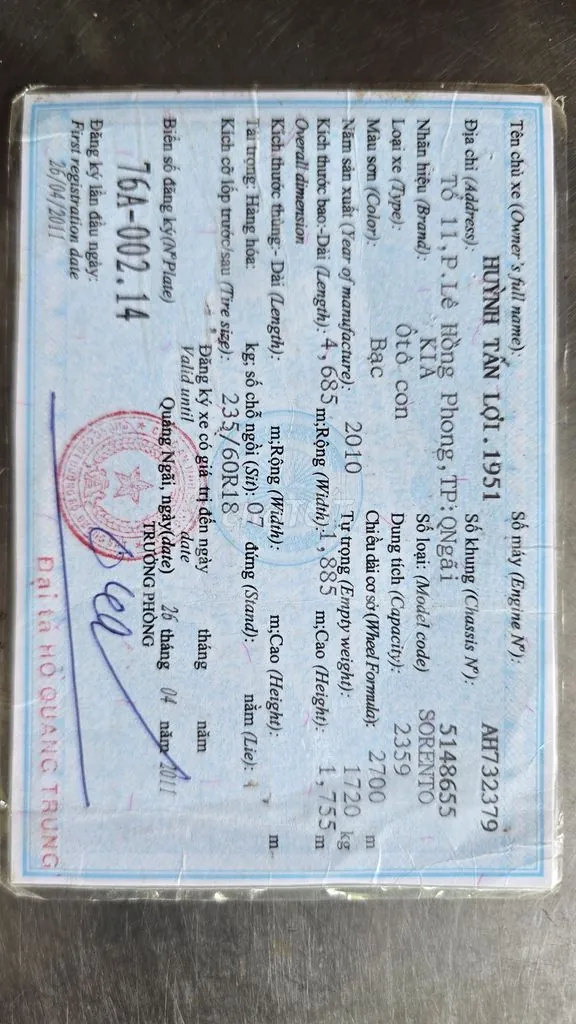 Tên chủ xe (Owner's full name): Số máy (Engine Nº):
HUỲNH TẤN LỢI.1951 AH732379
Địa chỉ (Address): Số khung (Chassis Nº):
Tổ 11,P.Lê Hồng Phong,TP:QNgãi 5148655
Nhãn hiệu (Brand): KIA Số loại: (Model code) SORENTO
Loại xe (Type): Ôtô con Dung tích (Capacity): 2359
Màu sơn (Color): Bạc Chiều dài cơ sở (Wheel Formula): 2700 m
Năm sản xuất (Year of manufacture): 2010 Tự trọng (Empty weight): 1720 kg
Kích thước bao:-Dài (Length): 4,685 m;Rộng (Width): 1,885 m;Cao (Height): 1,755 m
Overall dimension
Kích thước thùng:- Dài (Length): m;Rộng (Width): m;Cao (Height): m
Tải trọng: Hàng hóa: kg; số chỗ ngồi (Sit): 07 đứng (Stand): nằm (Lie):
Kích cỡ lốp trước/sau (Tire size): 235/60R18
Đăng ký xe có giá trị đến ngày tháng năm
Valid until date
Biển số đăng ký(Nº Plate) Quảng Ngãi, ngày(date) 26 tháng 04 năm 2011
TRƯỞNG PHÒNG
76A-002.14
Đăng ký lần đầu ngày:
First registration date
26/04/2011
Đại tá HỒ QUANG TRUNG